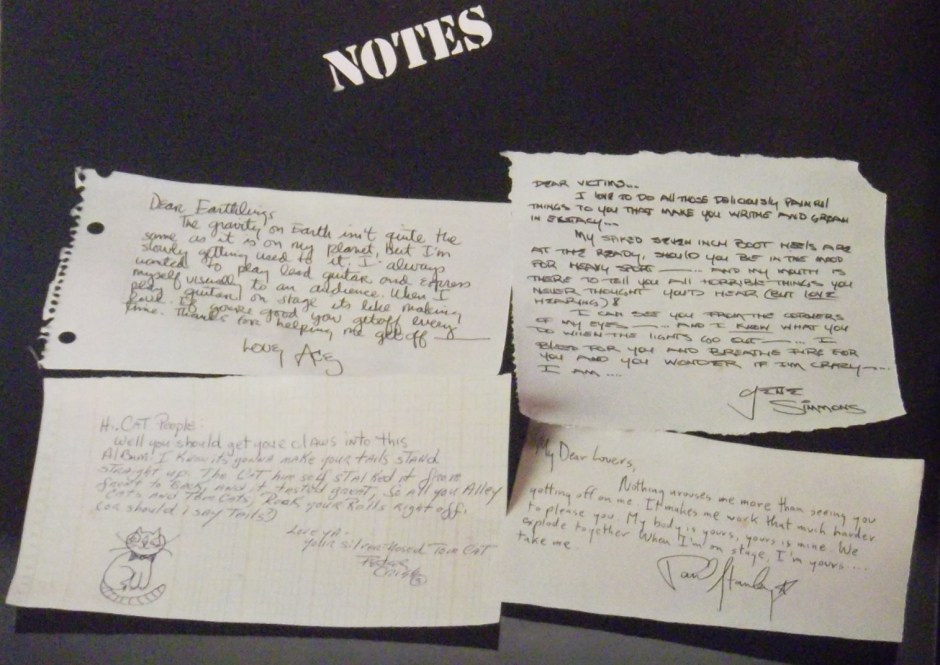 NOTES
Dear Earthlings
The gravity on Earth isn't quite the
same as it is on my planet, But I'm
slowly getting used to it. I always
wanted to play lead guitar and Express
myself visually to an audience. When I
play guitar on stage its like making
love. If you're good you get off every
time. Thanks for helping me get off
Love, Ace
DEAR VICTIMS...
I love TO DO All THOSE DELICIOUSLY PAINFUL
THINGS TO YOU THAT MAKE YOU WRITHE AND GROAN
IN ECSTACY...
MY SPIKED SEVEN INCH BOOT HEELS ARE
AT THE READY, SHOULD YOU BE IN THE MOOD
FOR HEAVY SPORT ... AND MY MOUTH IS
THERE TO TELL YOU ALL HORRIBLE THINGS YOU
NEVER THOUGHT YOU'D HEAR (BUT LOVE
HEARING)!
I CAN SEE YOU FROM THE CORNERS
OF MY EYES ... AND I KNOW WHAT YOU
DO WHEN THE LIGHTS GO OUT ... I
BLEED FOR YOU AND BREATHE FIRE FOR
YOU AND YOU WONDER IF I'M CRAZY ...
I AM ....
GENE
SIMMONS
Hi, CAT People:
Well you should get your claws into this
Album! I know its gonna make your tails stand
straight up. The Cat himself stalked it from
front to Back, and it tested great, so All you Alley
Cats and Tame Cats, Rock your Rolls Right off!
(or should i say Tails?)
Love ya-
your silver-nosed Tom Cat
Peter
Criss
My Dear Lovers,
Nothing arouses me more than seeing you
getting off on me. It makes me work that much harder
to please you. My body is yours, yours is mine. We
explode together. When I'm on stage, I'm yours ....
take me
Paul Stanley